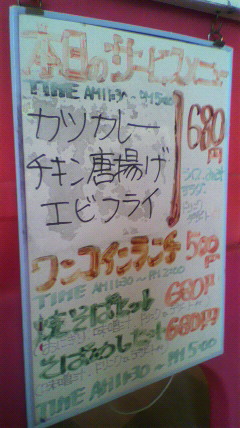 本日のサービスメニュー
TIME AM11:30〜PM5:00
カツカレー
チキン唐揚げ
エビフライ
680円
ワンコインランチ 500円
TIME AM11:30〜PM2:00
焼そばセット 680円
そばめしセット 680円
TIME AM11:30〜PM5:00